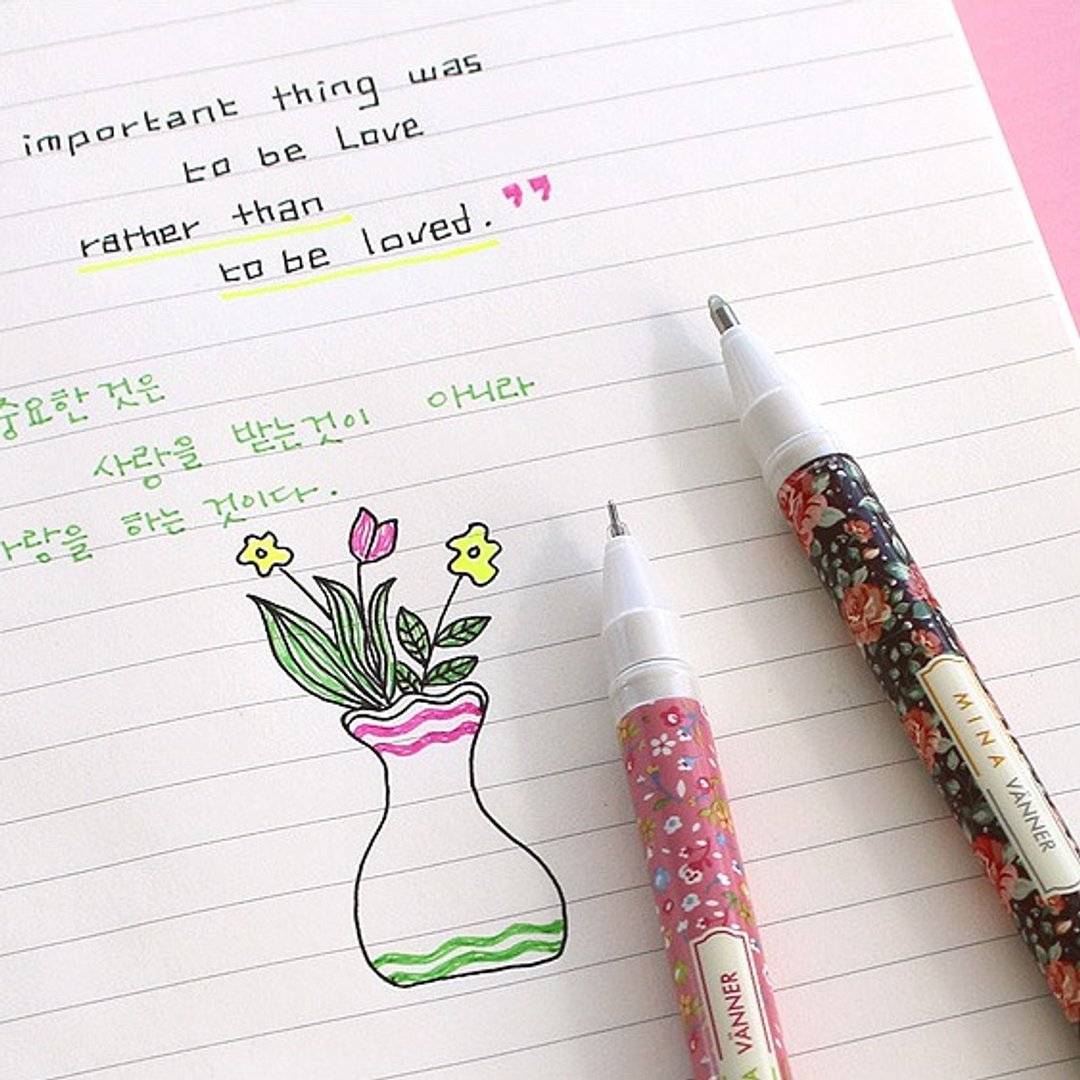 important thing was
to be Love
rather than
to be loved.”
중요한 것은
사랑을 받는것이 아니라
사랑을 하는 것이다.
MINA VÄNNER
VÄNNER